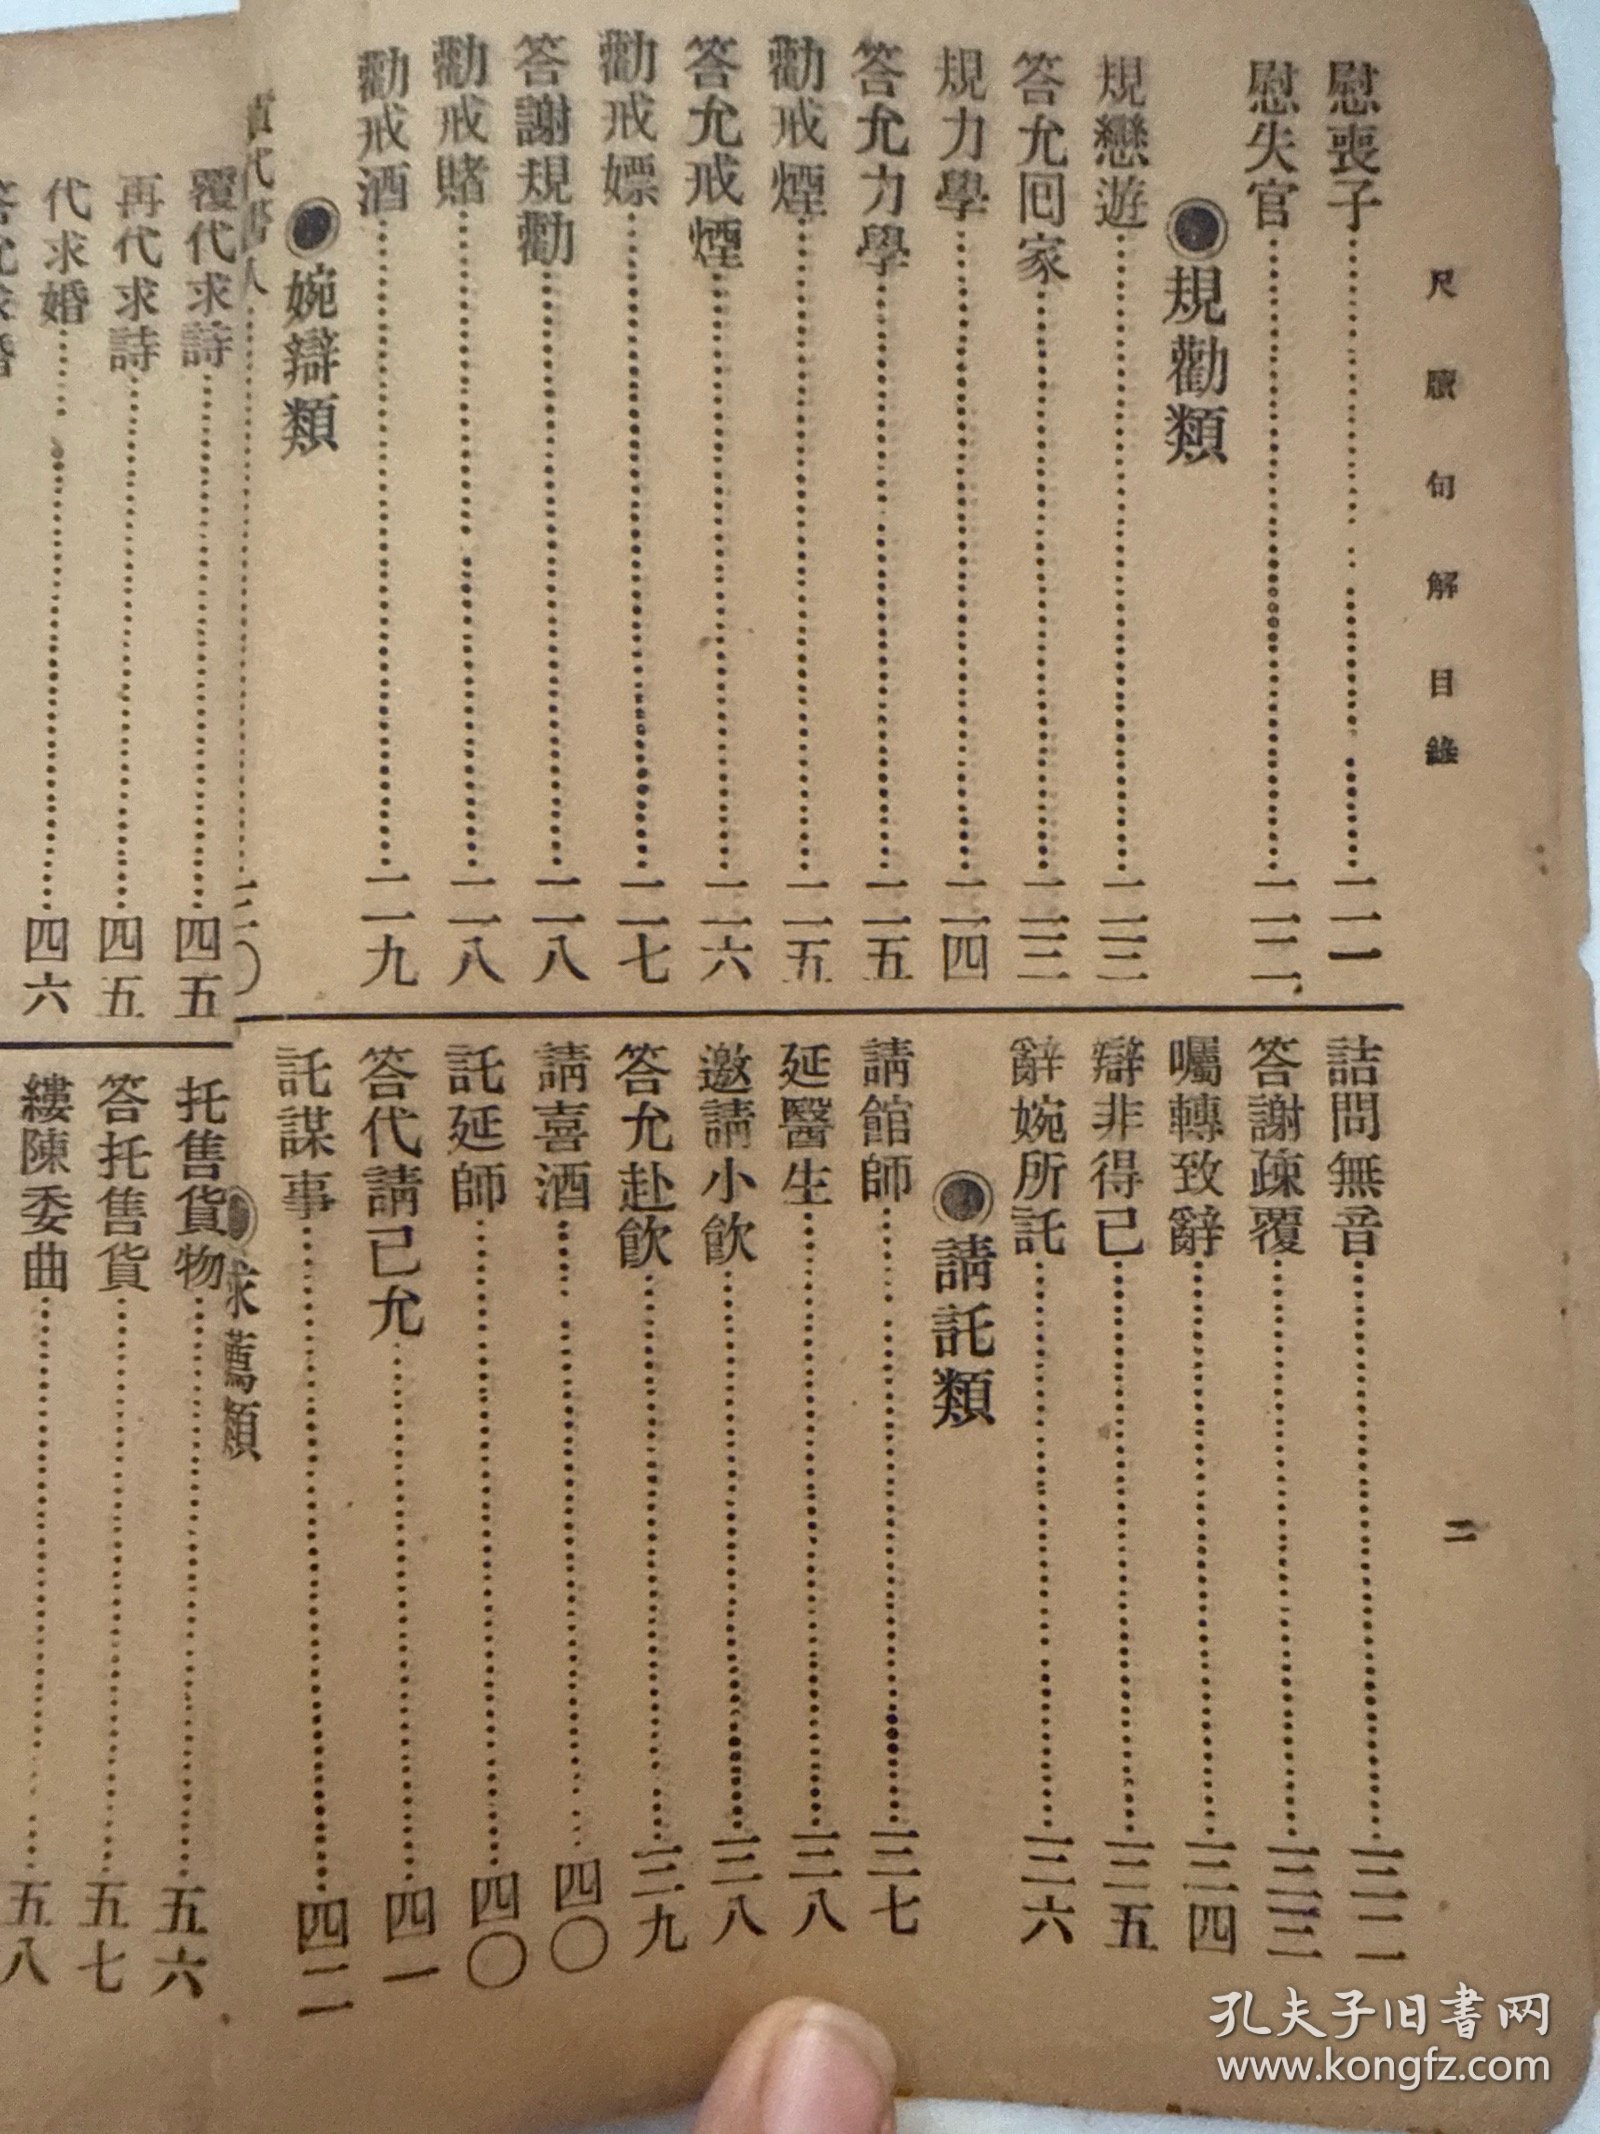 尺牘句解目錄
二
慰喪子 二一
慰失官 二二
●規勸類
規戀遊 二三
答允囘家 二三
規力學 二四
答允力學 二五
勸戒煙 二五
答允戒煙 二六
勸戒嫖 二七
答謝規勸 二八
勸戒賭 二八
勸戒酒 二九
●婉辯類
代書人 三〇
詰問無音 三二
答謝疎覆 三三
囑轉致辭 三四
辯非得已 三五
辭婉所託 三六
●請託類
請館師 三七
延醫生 三八
邀請小飲 三八
答允赴飲 三九
請喜酒 四〇
託延師 四〇
答代請已允 四一
託謀事 四二
●求薦類
覆代求詩 四五
再代求詩 四五
代求婚 四六
托售貨物 五六
答托售貨 五七
縷陳委曲 五八
孔夫子旧書网
www.kongfz.com